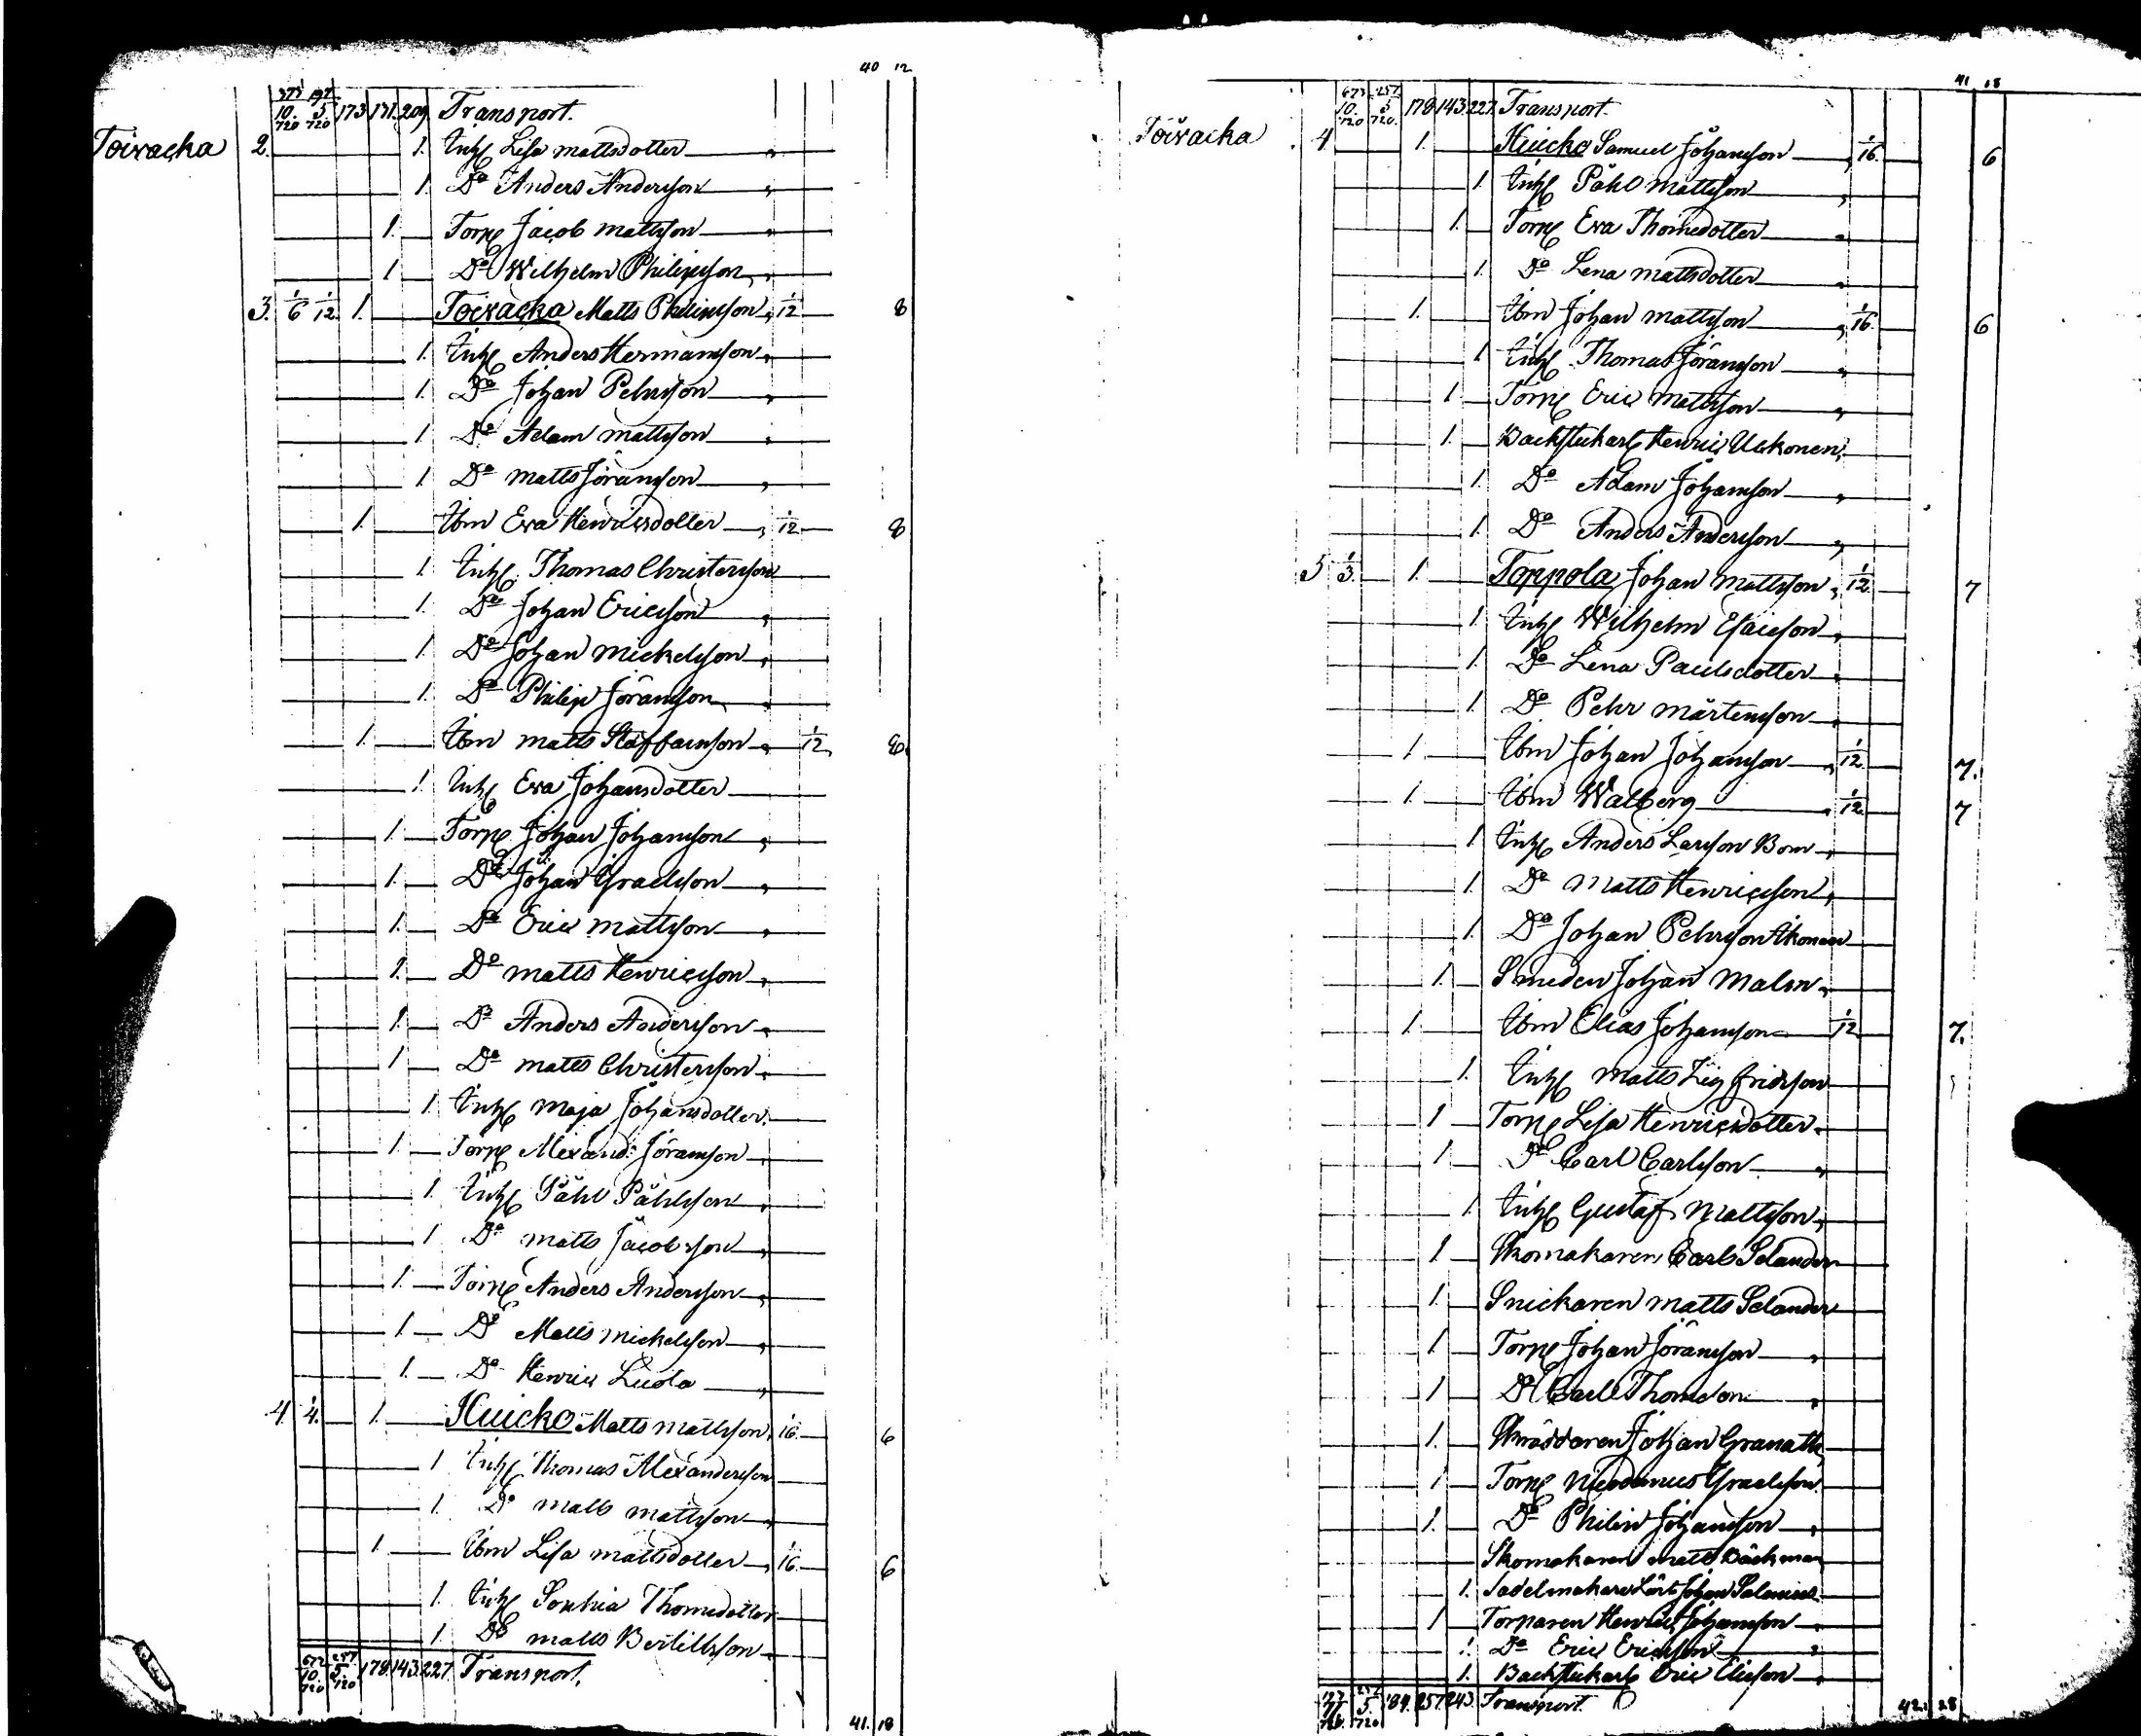 40 12
10 5 173 131 209 Transport.
720 720
Toivacka 2. 1. Inh Lisa Mattsdotter
1. Do Anders Andersson
1. Torp Jacob Mattsson
1. Do Wilhelm Philipsson
3. 1/6 1/12 1. Toivacka Matts Philipsson 1/12 8
1. Inh Anders Hermansson
1. Do Johan Pehrsson
1 Do Adam Mattsson
1 Do Matts Jöransson
1. Ibm Eva Henricsdotter 1/12 8
1. Inh Thomas Christersson
1. Do Johan Ericsson
1. Do Johan Mickelsson
1. Do Philip Jöransson
1. Ibm Matts Staffansson 1/12 8.
1. Inh Eva Johansdotter
1. Torp Johan Johansson
1. Do Johan Israelsson
1. Do Eric Mattsson
1. Do Matts Henricsson
1. Do Anders Andersson
1 Do Matts Christersson
1. Inh Maja Johansdotter
1. Torp Alexand: Jöransson
1. Inh Påhl Påhlsson
1 Do Matts Jacobsson
1. Torp Anders Andersson
1. Do Matts Mickelsson
1. Do Henric
4 1/4. 1. Huicko Matts Mattsson 1/16. 6
1 Inh Thomas Alexandersson
1. Do Matts Mattsson
1. Ibm Lisa Mattsdotter 1/16. 6
1. Inh Sophia Thomedotter
1. Do Matts Bertillsson
10 5. 178. 143. 227. Transport.
720 720
41. 18
41 18
10. 5 178. 143. 227. Transport.
720 720.
Toivacka 4 1. Huicko Samuel Johansson 1/16. 6
1. Inh Påhl Mattsson
1. Torp Eva Thomedotter
1. Do Lena Mattsdotter
1. Ibm Johan Mattsson 1/16. 6
1 Inh Thomas Jöransson
1. Torp Eric Mattsson
1. Backstukarl Henric Uskonen
1. Do Adam Johansson
1. Do Anders Andersson
5 1/3. 1. Toppola Johan Mattsson 1/12. 7
1 Inh Wilhelm Esaiesson
1. Do Lena Paulsdotter
1. Do Pehr Mårtensson
1. Ibm Johan Johansson 1/12. 7.
1. Ibm Walberg 1/12. 7
1 Inh Anders Larsson Bom
1. Do Matts Henricsson
1. Do Johan Pehrsson
1. Smeden Johan Malm
1. Ibm Elias Johansson 1/12 7.
1. Inh Matts Zigfridsson
1 Torp Lisa Henricsdotter
1 Do Carl Carlsson
1. Inh Gustaf Mattsson
1 Skomakaren Carl Selander
1. Snickaren Matts Selander
1 Torp Johan Jöransson
1 Do Carl Thomesson
1. Skräddaren Johan Granath
1 Torp Nicodemus Israelsson
1. Do Philip Johansson
Skomakaren Matts Bäckman
1. Sadelmakare Lärl Johan Salenius
1 Torparen Henric Johansson
1. Do Eric Ericsson
1. Backstukarl Eric Elisson
5. 184. 157. 243. Transport
720. 720
42. 28